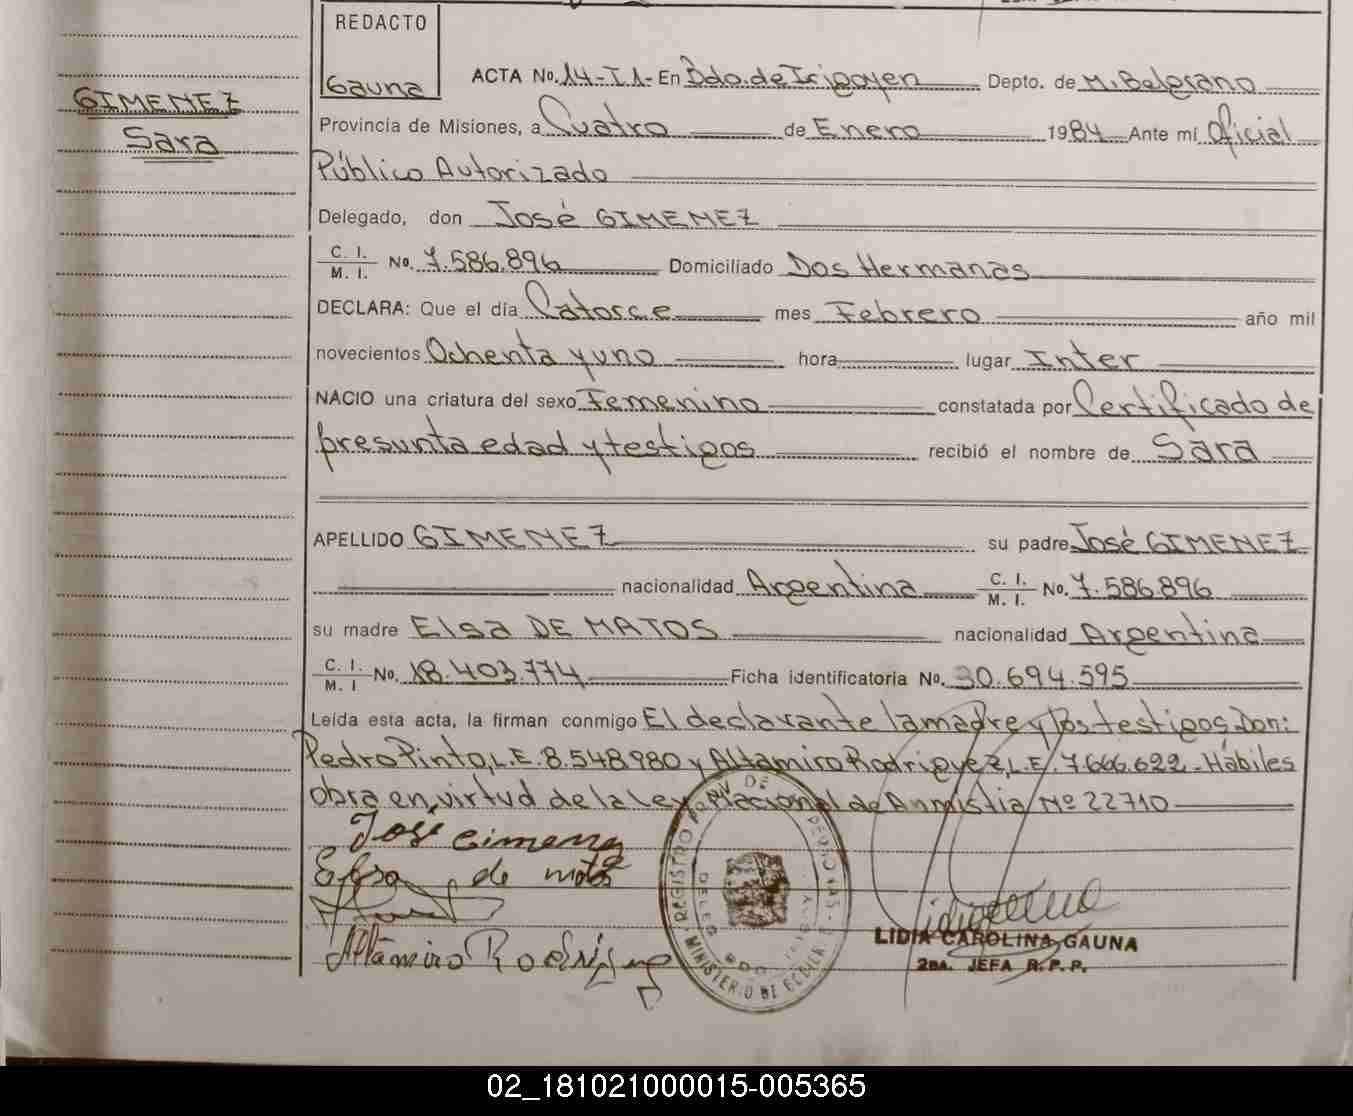 REDACTO
Gauna
GIMENEZ
Sara
ACTA No. 14-T1- En Bdo. de Irigoyen Depto. de M. Belgrano
Provincia de Misiones, a Cuatro de Enero 1984 Ante mí Oficial
Público Autorizado
Delegado, don José GIMENEZ
C. I.
M. I. No. 7.586.896 Domiciliado Dos Hermanas
DECLARA: Que el día Catorce mes Febrero año mil
novecientos Ochenta y uno hora lugar Inter
NACIO una criatura del sexo Femenino constatada por Certificado de
presunta edad y testigos recibió el nombre de Sara
APELLIDO GIMENEZ su padre José GIMENEZ
nacionalidad Argentina C. I.
M. I. No. 7.586.896
su madre Elsa DE MATOS nacionalidad Argentina
C. I.
M. I No. 18.403.774 Ficha identificatoria No. 30.694.595
Leída esta acta, la firman conmigo El declarante la madre y los testigos Don:
Pedro Pinto, L.E. 8.548.980 y Altamiro Rodriguez, L.E. 7.666.622 - Hábiles
obra en virtud de la Ley Nacional de Anmistia Nº 22710
José Gimenez
Elsa de matos
Altamiro Rodriguez
REGISTRO PROV. DE
MINISTERIO DE
LIDIA CAROLINA GAUNA
2DA. JEFA R. P. P.
02_181021000015-005365